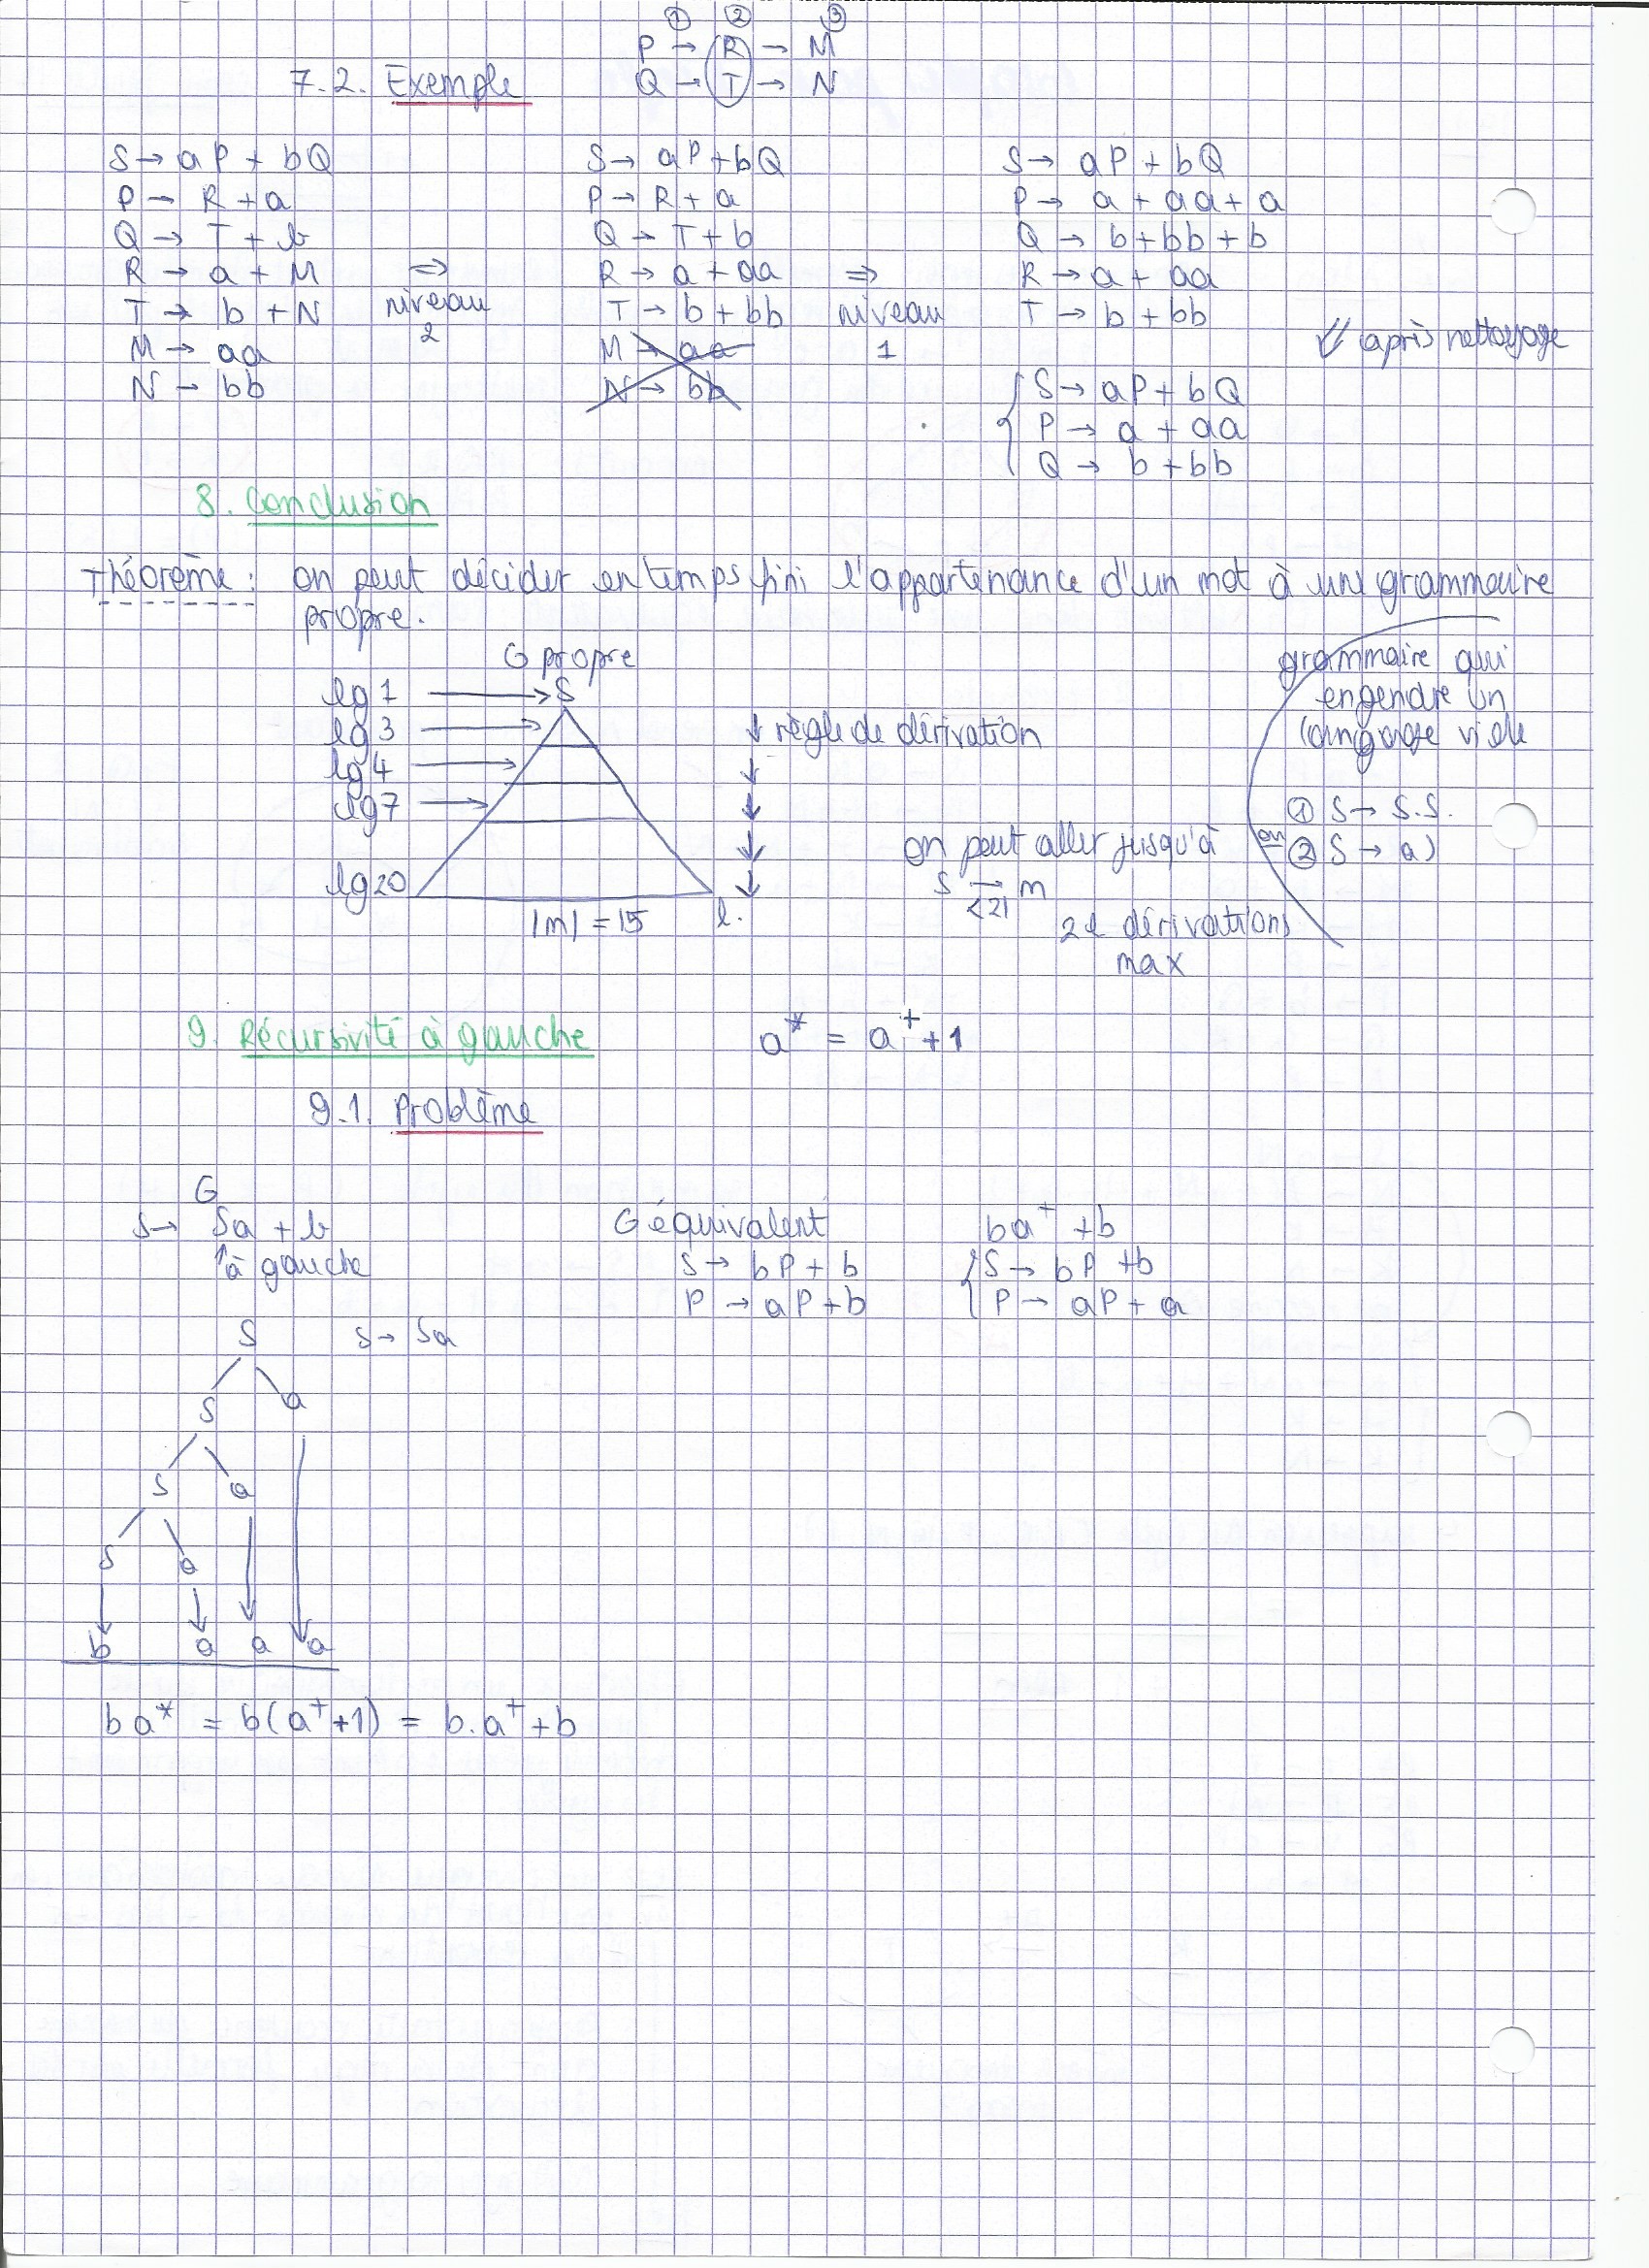 ① ② ③
P → R → M
7.2. Exemple Q → T → N
S → aP + bQ
P → R + a
Q → T + b
R → a + M
T → b + N
M → aa
N → bb
⇒
niveau
2
S → aP + bQ
P → R + a
Q → T + b
R → a + aa
T → b + bb
M → aa
N → bb
⇒
niveau
1
S → aP + bQ
P → a + aa + a
Q → b + bb + b
R → a + aa
T → b + bb
⇓ après nettoyage
S → aP + bQ
P → a + aa
Q → b + bb
8. Conclusion
Théorème : on peut décider en temps fini l'appartenance d'un mot à une grammaire
propre.
G propre
lg 1 → S
lg 3
lg 4
lg 7
lg 20
|m| = 15 l.
↓ règle de dérivation
on peut aller jusqu'à
S → m
<21
2l dérivations
max
grammaire qui
engendre un
langage vide
① S → S.S.
ou ② S → a)
9. Récursivité à gauche a* = a⁺ + 1
9.1. Problème
G
S → Sa + b
↑ à gauche
G équivalent
S → bP + b
P → aP + b
ba⁺ + b
S → bP + b
P → aP + a
S S → Sa
S a
S a
S a
b a a a
ba* = b(a⁺+1) = b.a⁺ + b